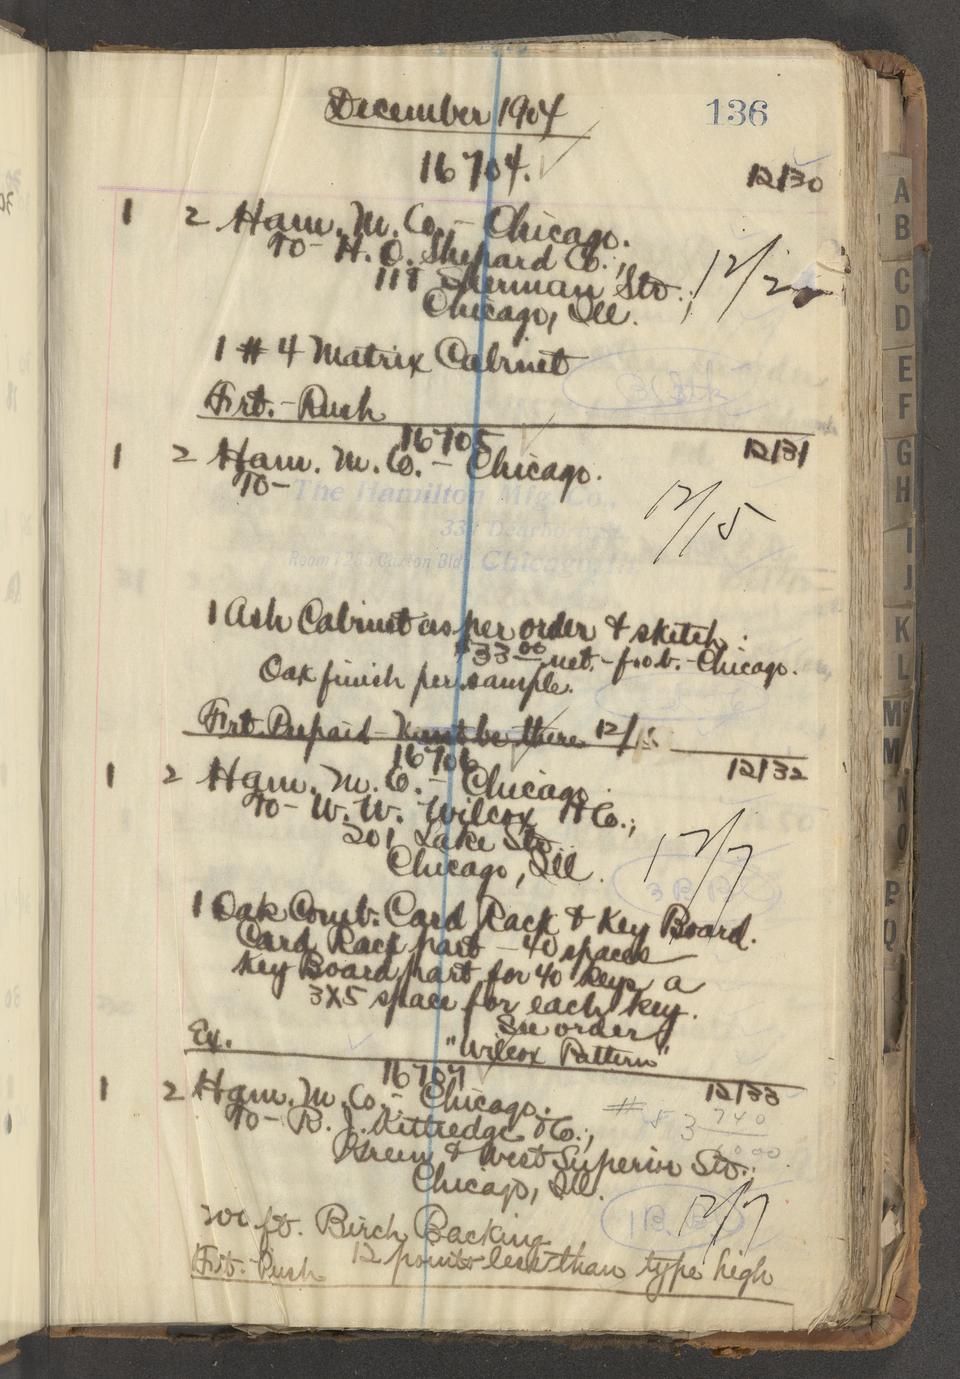 December 1904
136
16704.
12/30
1 2 Ham. M. Co. - Chicago.
To - H. O. Shepard Co.;
Sherman Sts.;
Chicago, Ill.
1 # 4 Matrix Cabinet
Frt. - Rush
16705
12/31
1 2 Ham. M. Co. - Chicago.
To -
The Hamilton Mfg. Co.,
Chicago, Ill.
12/15
1 Ash Cabinet as per order & sketch.
$33 00 net. - f.o.b. - Chicago.
Oak finish per sample.
Frt. Prepaid - Must be there 12/15
16706
12/32
1 2 Ham. M. Co. - Chicago.
To - W. W. Wilcox & Co.;
201 Lake Sts.
Chicago, Ill.
12/7
1 Oak Comb. Card Rack & Key Board.
Card Rack part - 40 spaces
Key Board part for 40 keys, a
3X5 space for each key.
See order
Ex. "Wilcox Pattern"
16707
12/33
1 2 Ham. M. Co. - Chicago.
To - R. J. Kittredge & Co.;
Green & West Superior Sts.;
Chicago, Ill.
12/7
200 ft. Birch Backing
12 points less than type high
Frt. - Rush
A
B
C
D
E
F
G
H
I
J
K
L
M
N
O
P
Q